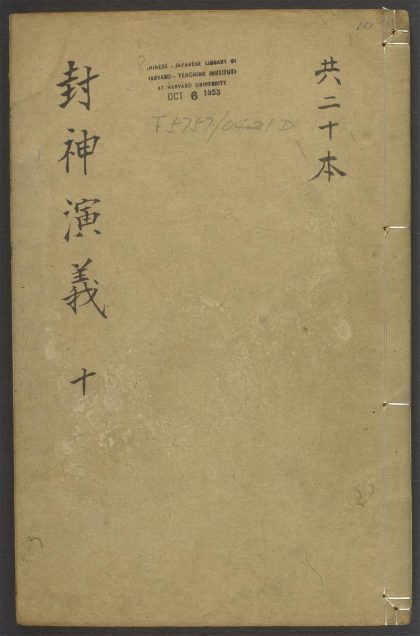 共二十本
10
CHINESE - JAPANESE LIBRARY OF
HARVARD - YENCHING INSTITUTE
AT HARVARD UNIVERSITY
OCT 6 1953
T5757/0421D
封神演義 十